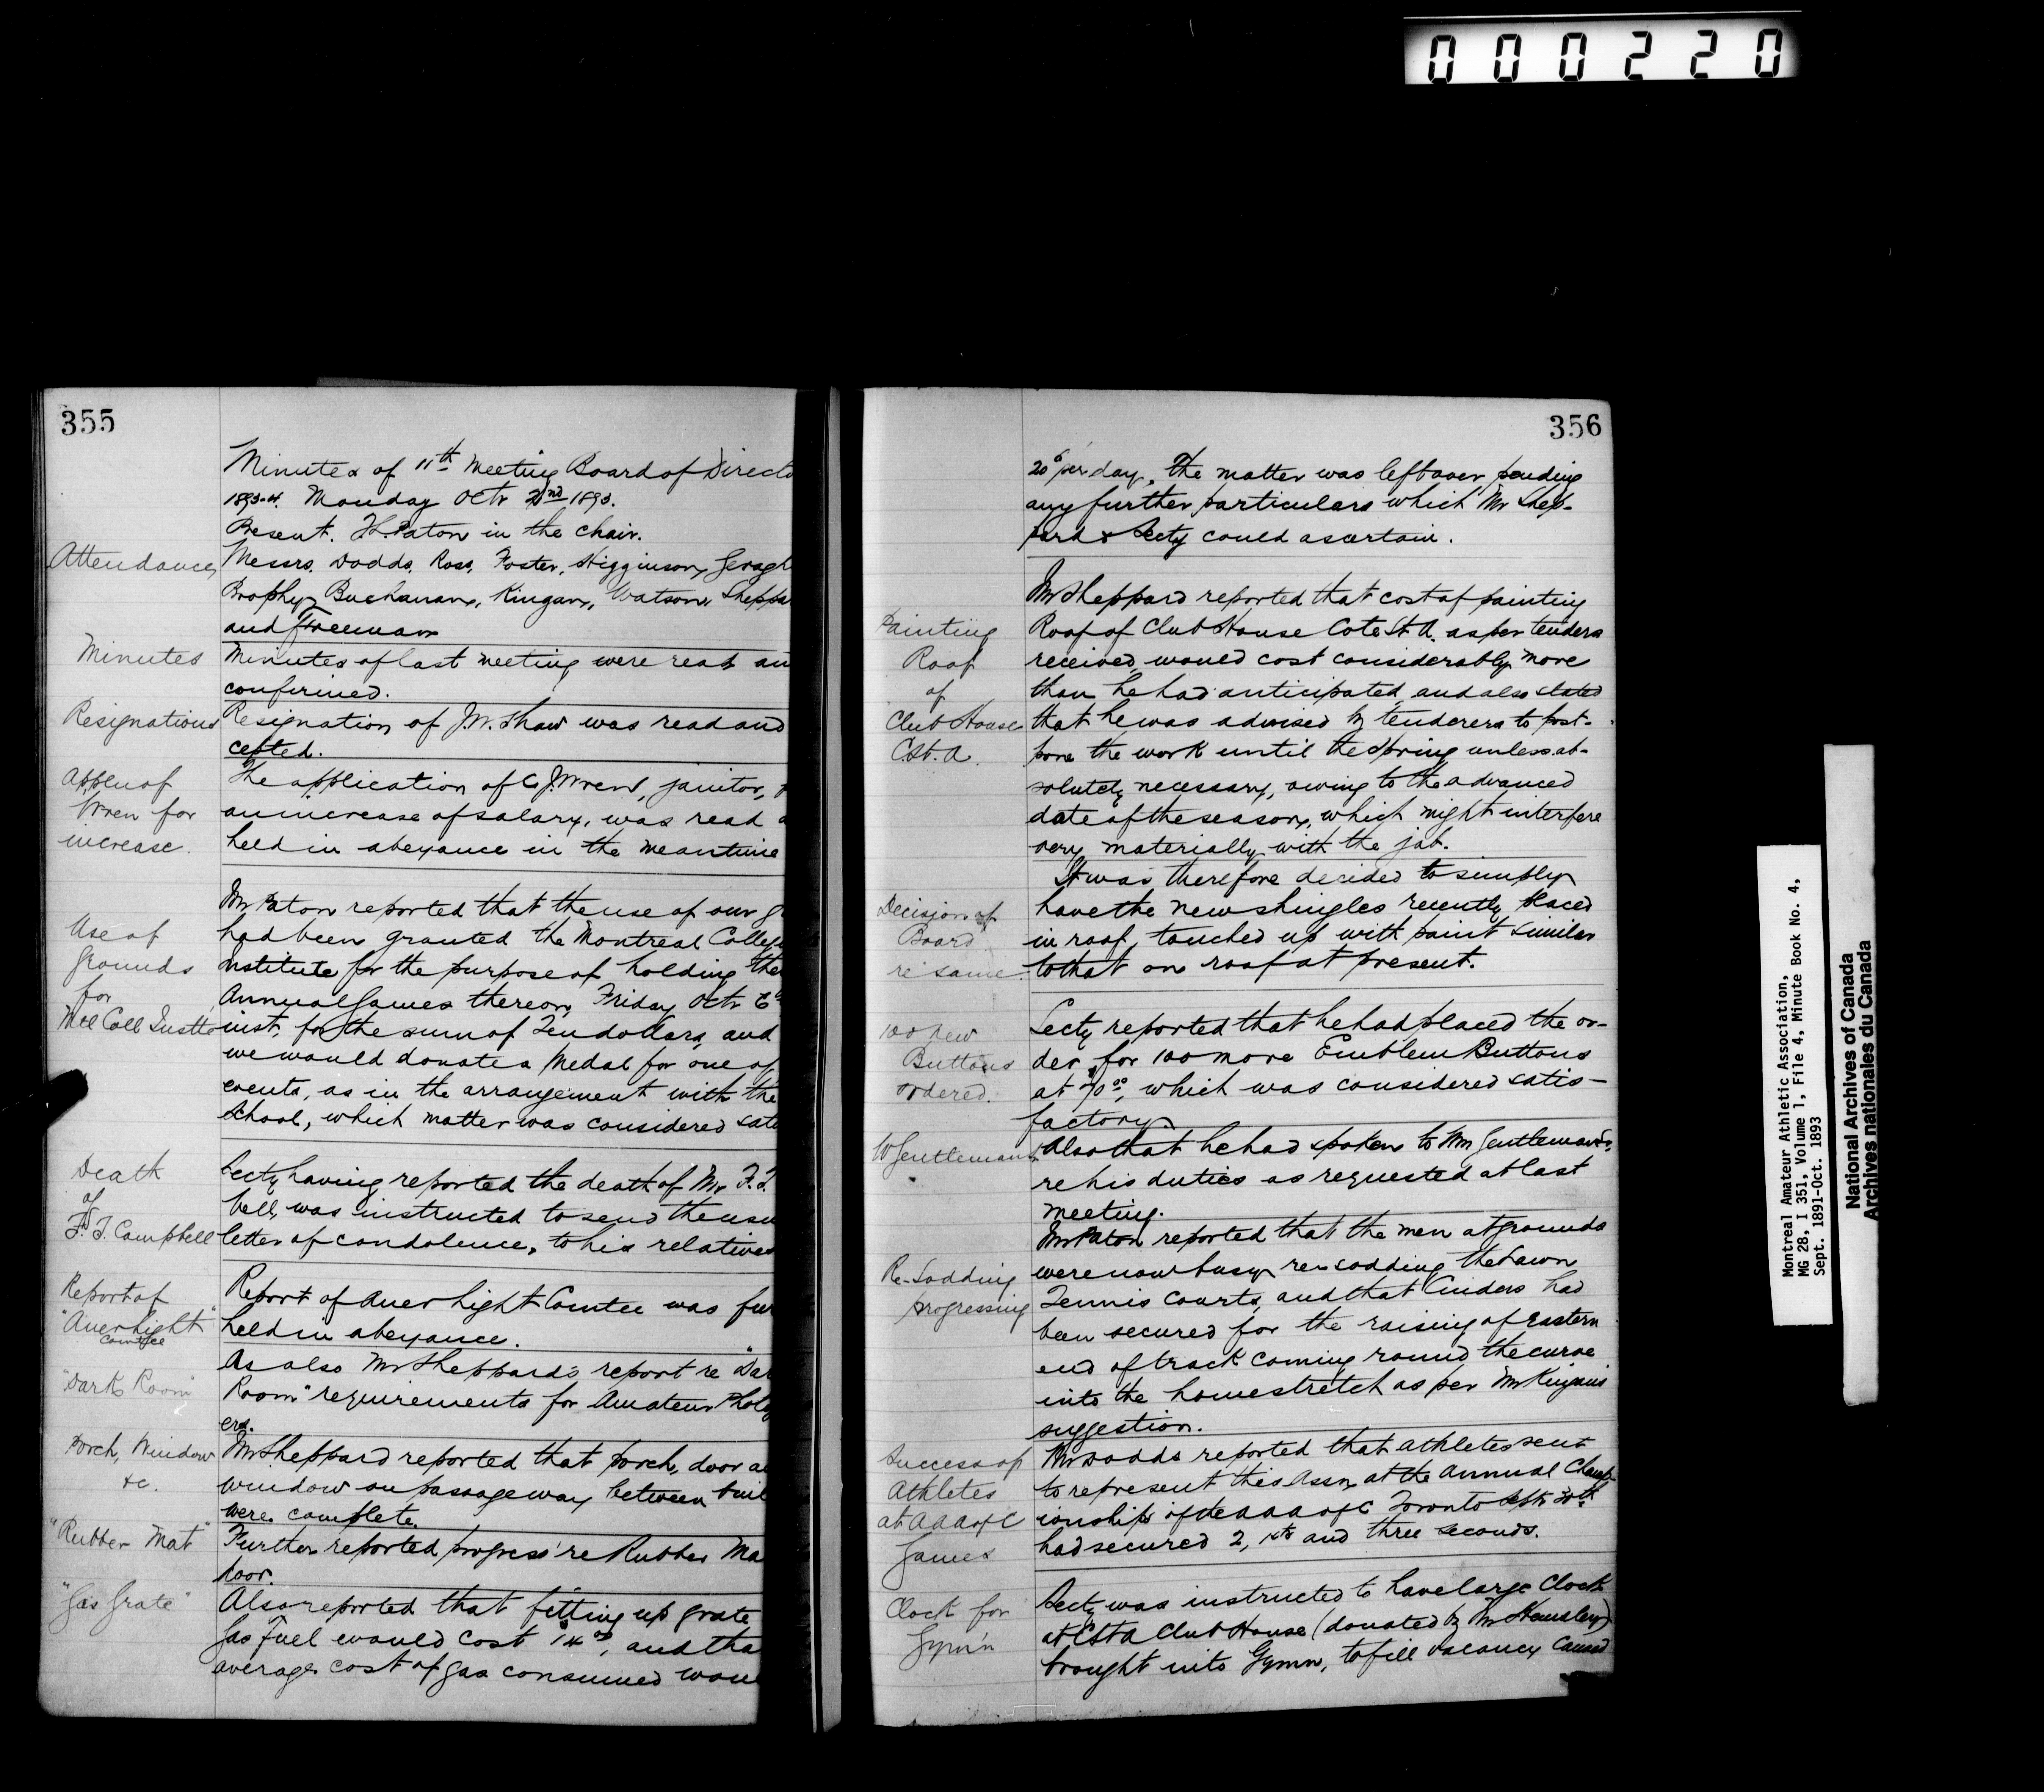 000220
355
Minutes of 11th Meeting Board of Directo
1893-4. Monday Octr 2nd 1893.
Present. T.L. Paton in the chair.
Attendance, Messrs. Dodds, Ross, Foster, Higginson, Geragh
Brophy, Buchanan, Kingan, Watson, Sheppa
and Freeman
Minutes Minutes of last meeting were read an
confirmed.
Resignations Resignation of J.W. Shaw was read and
cepted.
Appln of The application of C.J. Wren, janitor,
Wren for an increase of salary, was read a
increase. held in abeyance in the meantime
Mr Paton reported that the use of our g
Use of had been granted the Montreal Colleg
Grounds nstitute for the purpose of holding thei
for Annual Games thereon, Friday Octr 6th
Mtl Coll Instte inst. for the sum of Ten dollars, and
we would donate a Medal for one of
events, as in the arrangement with the
School, which matter was considered sati
Death Secty having reported the death of Mr F.F.
of bell, was instructed to send the usu
F.F. Campbell letter of condolence, to his relatives
Report of Report of Auer Light Comtee was fur
"Auer Light" held in abeyance.
Comtee
As also Mr Sheppard's report re "Dar
"Dark Room" Room" requirements for Amateur Photog
ers.
Porch, Window Mr Sheppard reported that porch, door a
&c. window on passageway between buil
were complete.
"Rubber Mat" Further reported progress re Rubber Ma
door.
"Gas Grate" Also reported that fitting up grate
Gas Fuel would cost $14.00, and tha
average cost of gas consumed wou
356
20¢ per day. The matter was left over pending
any further particulars which Mr Shep-
pard & Secty could ascertain.
Mr Sheppard reported that cost of painting
Painting Roof of Club House Cote St. A. as per tenders
Roof received, would cost considerably more
of than he had anticipated, and also stated
Club House that he was advised by tenderers to post-
C.St.A. pone the work until the Spring unless ab-
solutely necessary, owing to the advanced
date of the season, which might interfere
very materially with the job.
It was therefore decided to simply
Decision of have the new shingles recently placed
Board in roof, touched up with paint similar
re same. to that on roof at present.
100 new Secty reported that he had placed the or-
Buttons der for 100 more Emblem Buttons
ordered. at 70.00, which was considered satis-
factory
W Gentleman Also that he had spoken to Wm Gentleman
re his duties as requested at last
meeting.
Mr Paton reported that the men at grounds
Re-Sodding were now busy re-sodding the Lawn
progressing Tennis Courts, and that Cinders had
been secured for the raising of Eastern
end of track coming round the curve
into the homestretch as per Mr Kingan's
suggestion.
Success of Mr Dodds reported that athletes sent
Athletes to represent this Assn, at the Annual Champ-
at A A A of C ionships of the A A A of C Toronto Sept 30th
Games had secured 2, 1sts and three seconds.
Clock for Secty was instructed to have large Clock
Gym'n at CStA Club House (donated by Mr Hemsley)
brought into Gymn, to fill vacancy caused
Montreal Amateur Athletic Association,
MG 28, I 351, Volume 1, File 4, Minute Book No. 4,
Sept. 1891-Oct. 1893
National Archives of Canada
Archives nationales du Canada